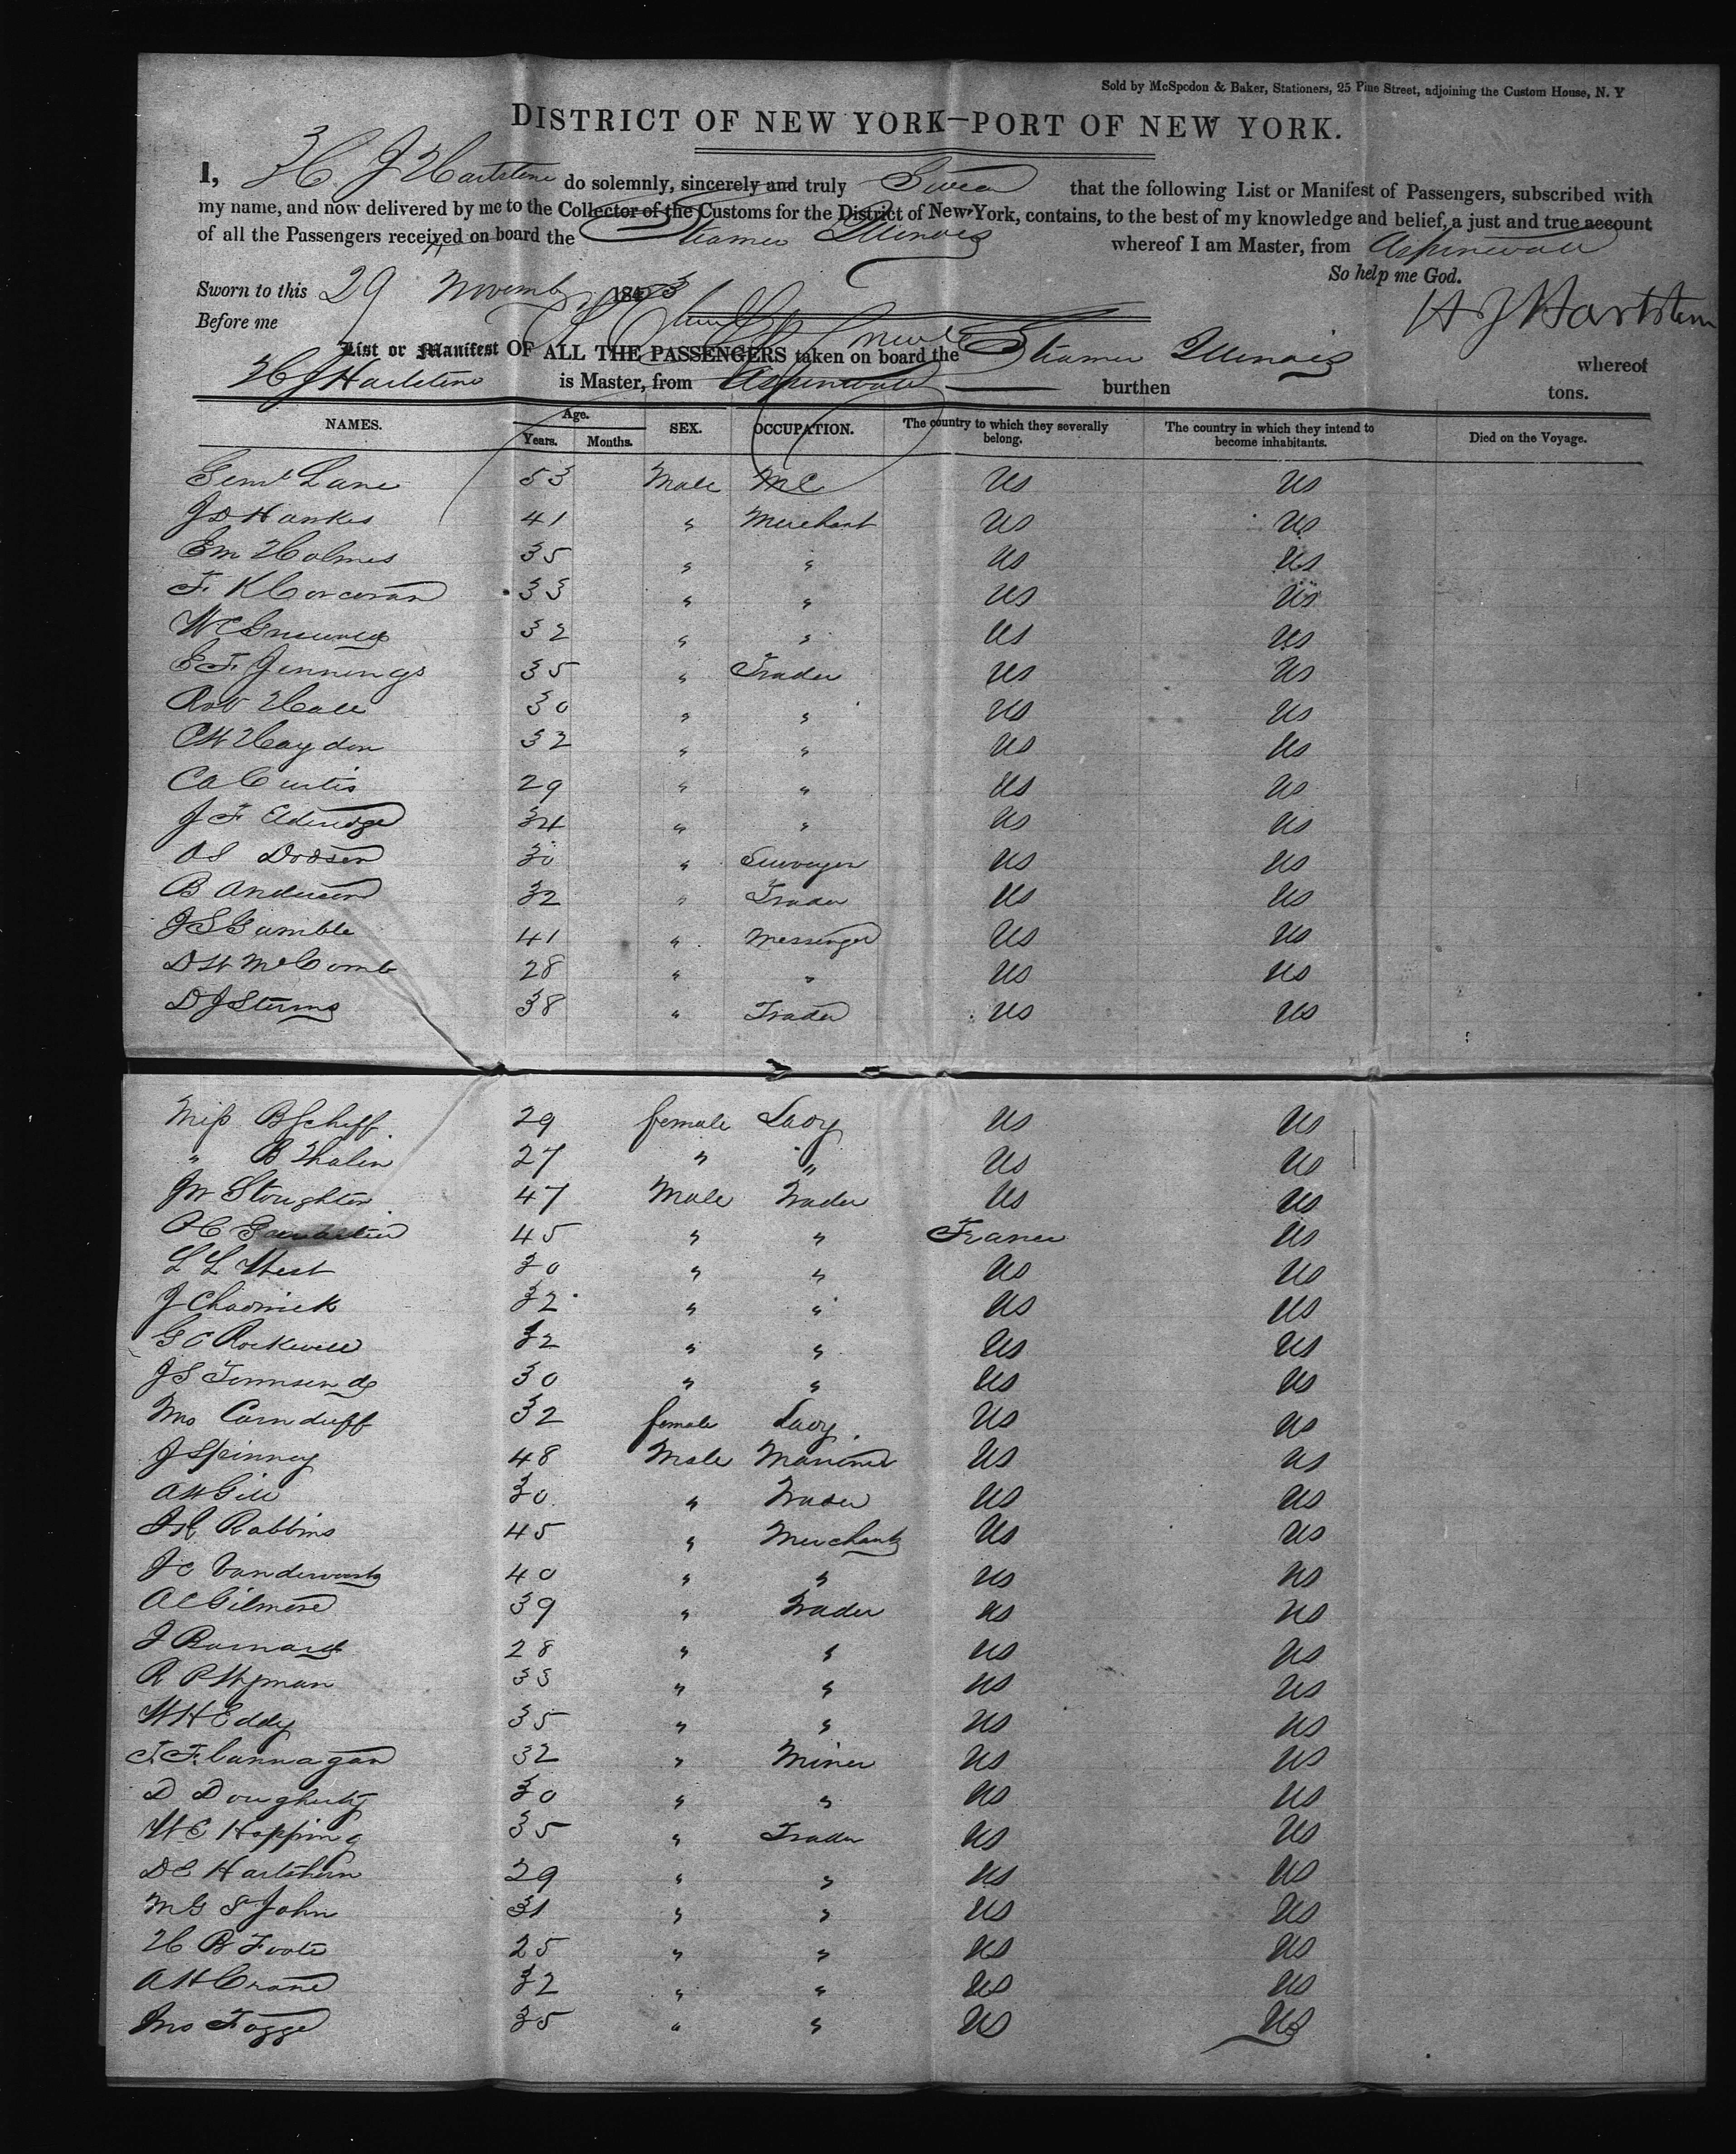 Sold by McSpedon & Baker, Stationers, 25 Pine Street, adjoining the Custom House, N. Y
DISTRICT OF NEW YORK—PORT OF NEW YORK.
I, H J Hartstene do solemnly, sincerely and truly Swear that the following List or Manifest of Passengers, subscribed with
my name, and now delivered by me to the Collector of the Customs for the District of New York, contains, to the best of my knowledge and belief, a just and true account
of all the Passengers received on board the Steamer Illinois whereof I am Master, from Aspinwall
So help me God.
Sworn to this 29 Novemb 1853
H J Hartstene
Before me
List or Manifest OF ALL THE PASSENGERS taken on board the Steamer Illinois whereof
H J Hartstene is Master, from Aspinwall burthen tons.
NAMES. Age. Years. Months. SEX. OCCUPATION. The country to which they severally belong. The country in which they intend to become inhabitants. Died on the Voyage.
Genl Lane 53 Male MC US US
J D Hawks 41 " Merchant US US
Em Holmes 35 " " US US
F. K Corcoran 33 " " US US
W C Griswold 32 " " US US
E F. Jennings 35 " Trader US US
Rob Hall 30 " " US US
C W Haydon 32 " " US US
C A Curtis 29 " " US US
J F Elderidge 34 " " US US
A S Dodson 30 " Surveyor US US
B Anderson 32 " Trader US US
J S Gamble 41 " Messenger US US
D W McComb 28 " " US US
D J Sterms 38 " Trader US US
Miss B Scheff 29 female Lady US US
" B Thalin 27 " " US US
J W Stoughton 47 Male Trader US US
A C 45 " " France US
L L West 30 " " US US
J Chadwick 32 " " US US
G C Rockwell 32 " " US US
J S Townsend 30 " " US US
Mrs Carnduff 32 female Lady US US
J Spinney 48 Male Mariner US US
A W Gill 30 " Trader US US
J R Robbins 45 " Merchant US US
J C Vandewort 40 " " US US
A C Gilmore 39 " Trader US US
J Barnard 28 " " US US
R P Wyman 33 " " US US
W H Eddy 35 " " US US
T. F. Cannagan 32 " Miner US US
D Dougherty 30 " " US US
W C Hopping 35 " Trader US US
D C Hartshorn 29 " " US US
M G St John 31 " " US US
H B Foote 25 " " US US
A H Crane 32 " " US US
Jno Fogge 35 " " US US